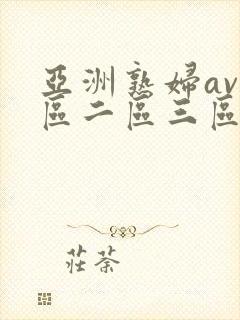 亞洲熟婦av
區二區三區
莊荼